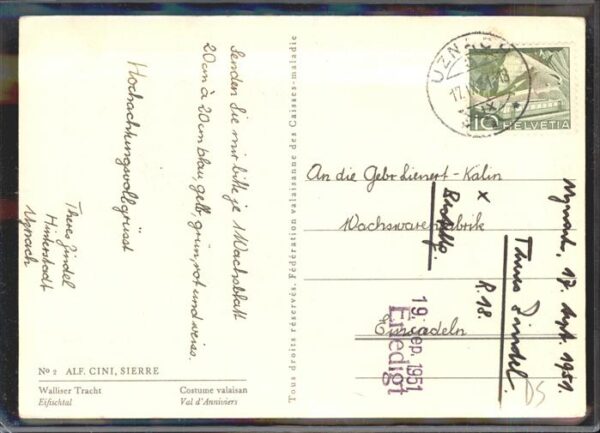 Senden Sie mir bitte je 1 Wachsblatt
20cm à 20cm blau, gelb, grün, rot und weiss.
Hochachtungsvoll grüsst
Theres Zindel
Hinterstadt
Uznach
No 2 ALF. CINI, SIERRE
Walliser Tracht
Costume valaisan
Eifischtal
Val d'Anniviers
Tous droits réservés. Fédération valaisanne des Caisses-maladie
UZNACH
17.IX.51
10
HELVETIA
An die Gebr Lienert-Kälin
Wachswarenfabrik
Einsiedeln
x
R.18.
19. Sep. 1951
Erledigt
Uznach, 17. Sept. 1951.
Theres Zindel.